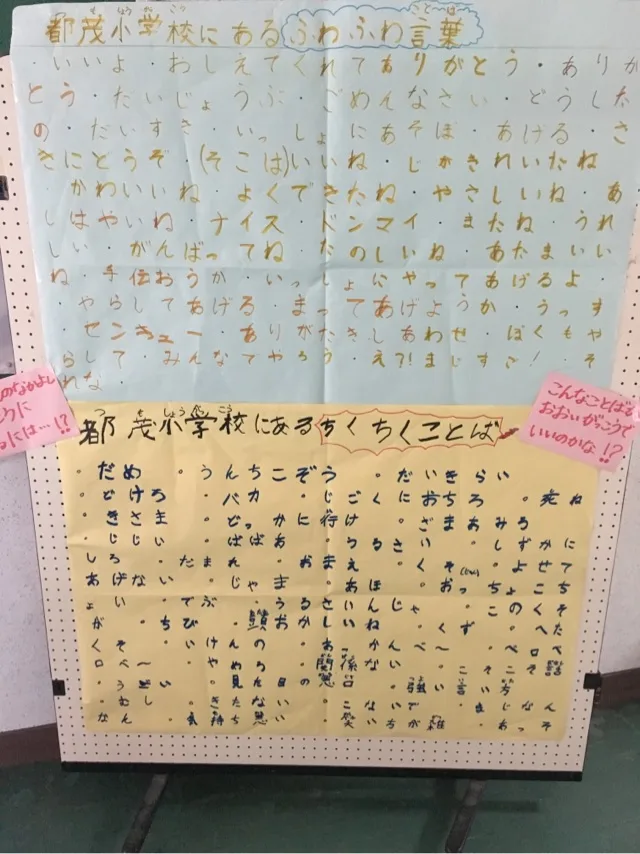 都茂小学校にあるふわふわ言葉
つ も しょうがっこう ことば
・いいよ・おしえてくれてありがとう・ありが
とう・だいじょうぶ・ごめんなさい・どうした
の・だいすき・いっしょにあそぼ・あげる・さ
きにどうぞ・(そこは)いいね・じがきれいだね
・かわいいね・よくできたね・やさしいね・あ
しはやいね・ナイス・ドンマイ・またね・うれ
しい・がんばってね・たのしいね・あたまいい
ね・手伝おうか・いっしょにやってあげるよ
・やらしてあげる・まってあげようか・うっす
・センキュー・ありがたきしあわせ・ぼくもや
らして・みんなでやろう・え?!まじすご!・そ
れな・
のなかよし
うに
るには…!?
こんなことばが
おおいがっこうで
いいのかな!?
都茂小学校にあるちくちくことば
つ も しょうがっこう
・だめ・うんちこぞう・だいきらい
・どけろ・バカ・じごくにおちろ・死ね
・きさま・どっかに行け・ざまあみろ
・じじい・ばばあ・うるさい・しずかに
しろ・だまれ・おまえ・くそ・よせて
あげない・じゃま・あほ・おっちょこち
ょい・でぶ・うるさいんじゃ・このくそ
が・ちび・頭おかしいね・くず・へた
くそ・いけんの・あっかんべ〜・ベロベ
ロベ〜・やめろ・関係ない・こそこそ話
・うざい・見た目の悪口・強い言い方
・むし・きたない・こないで・まじなん
なん・気持ち悪い・笑いちが